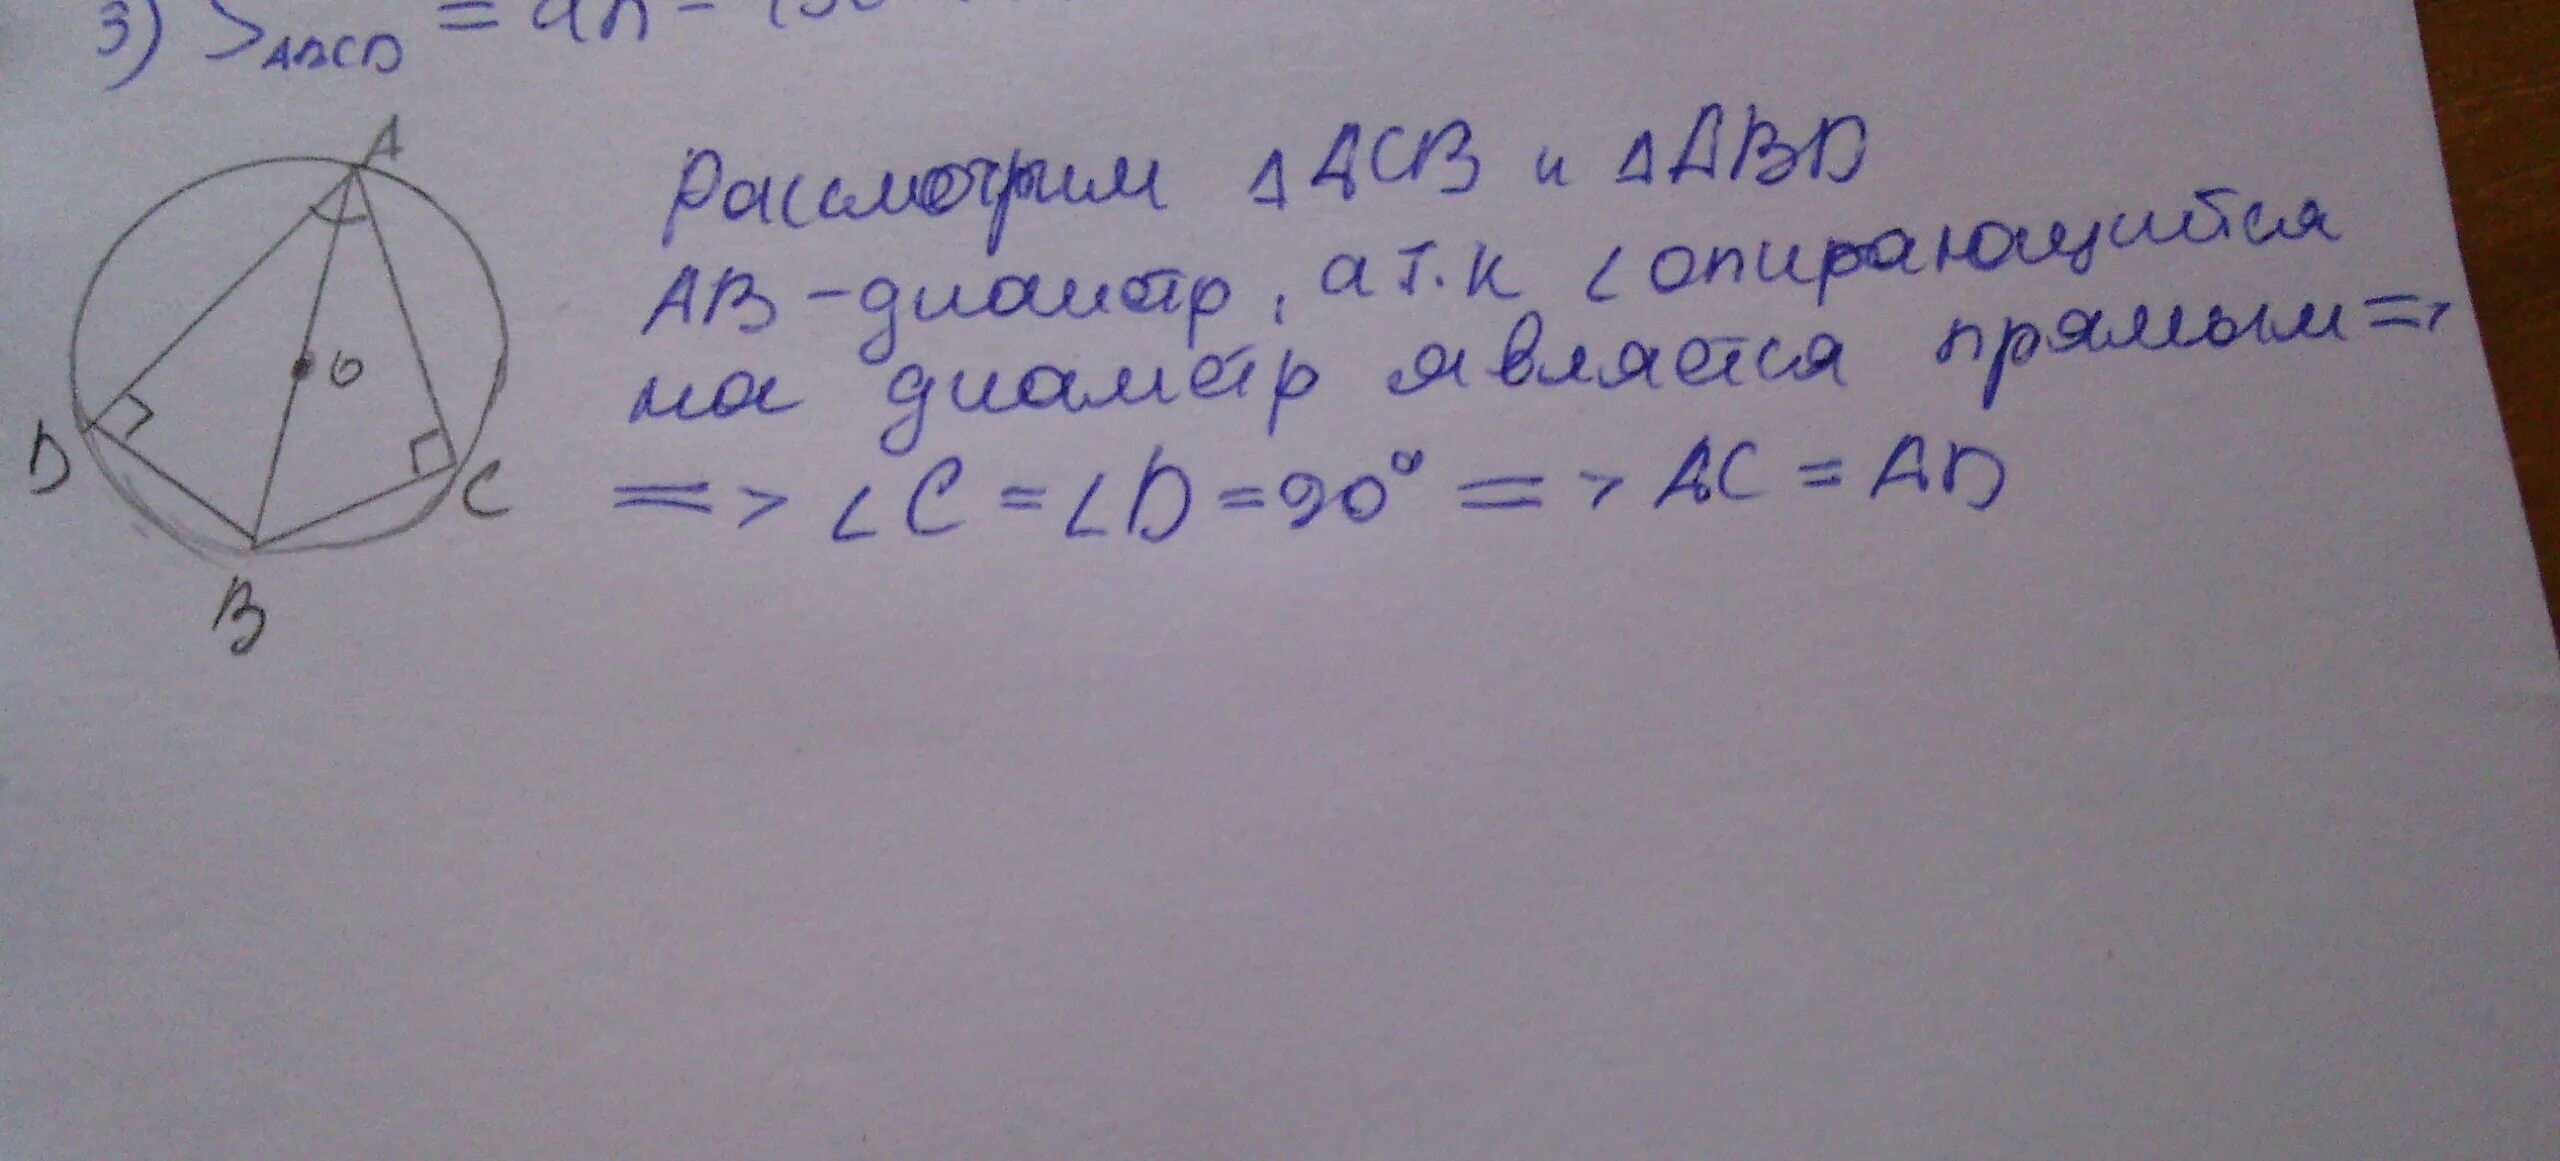 3) S_ABCD = ah =
A
O
D
C
B
Рассмотрим △ACB и △ABD
AB - диаметр, а т.к ∠опирающийся
на диаметр является прямым =>
=> ∠C = ∠D = 90° => AC = AD